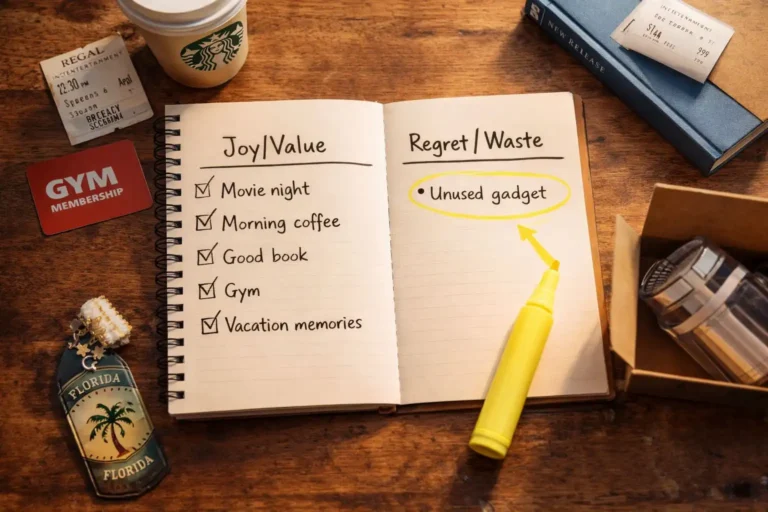 REGAL
22:30
GYM
MEMBERSHIP
Joy/Value
Movie night
Morning coffee
Good book
Gym
Vacation memories
Regret/Waste
• Unused gadget
NEW RELEASE
FLORIDA
FLORIDA